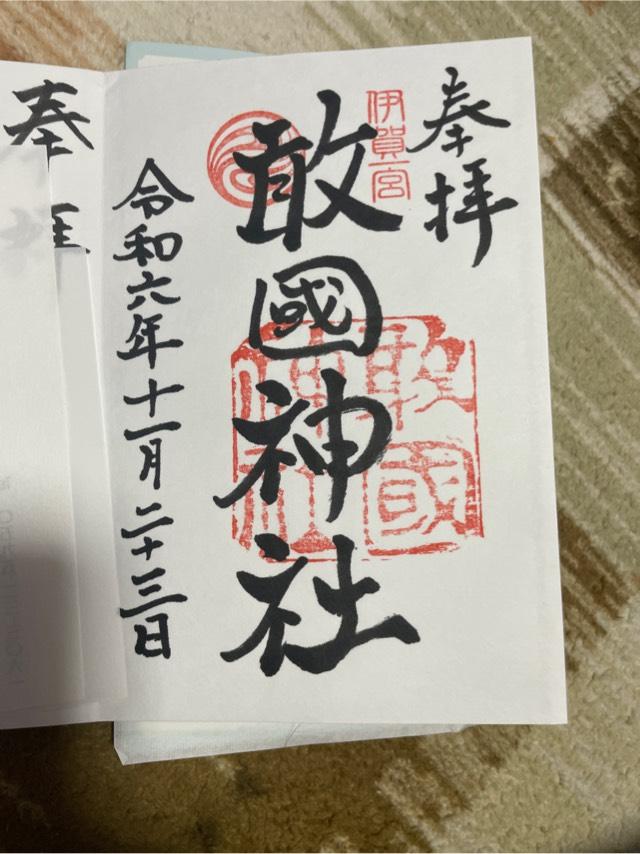 奉拝
伊賀一宮
敢國神社
敢國神社
令和六年十一月二十三日
奉